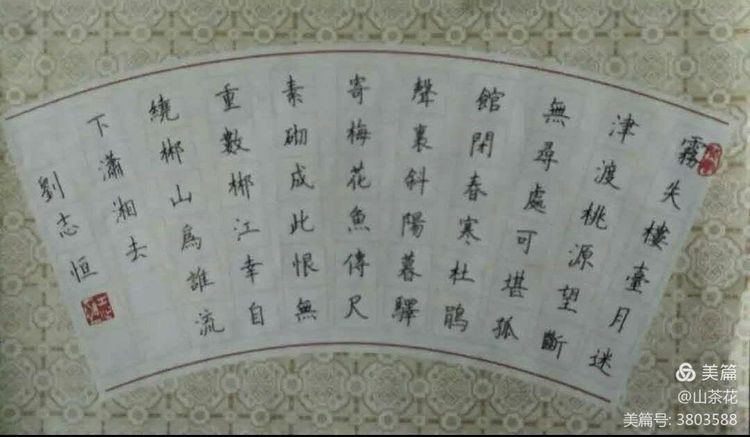 霧失樓臺月迷
津渡桃源望斷
無尋處可堪孤
館閑春寒杜鵑
聲裏斜陽暮驛
寄梅花魚傳尺
素砌成此恨無
重數郴江幸自
繞郴山為誰流
下瀟湘去
劉志恒
美篇
@山茶花
美篇号: 3803588